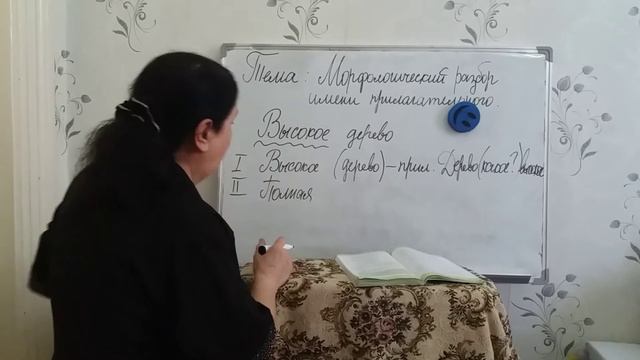 Тема: Морфологический разбор
имени прилагательного.
Высокое дерево
I Высокое (дерево) – прил. Дерево (какое?) высокое
II Полная